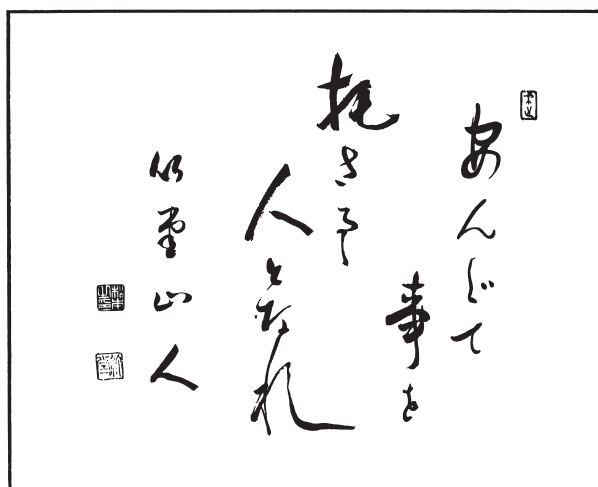 安んじて
事を
托さるゝ
人となれ
山人